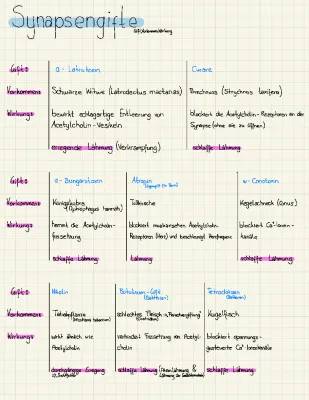 Synapsengifte
Gift/Vorkommen/Wirkung
Gift: α-Latrotoxin Curare
Vorkommen: Schwarze Witwe (Latrodectus mactans) Brechnuss (Strychnos toxifera)
Wirkung: bewirkt schlagartige Entleerung von blockiert die Acetylcholin-Rezeptoren an der
Acetylcholin-Vesikeln Synapse (ohne sie zu öffnen)
erregende Lähmung (Verkrampfung) schlaffe Lähmung
Gift: α-Bungarotoxin Atropin ω-Conotoxin
Vorkommen: Königskobra Tollkirsche Kegelschnecke (Conus)
(Ophiophagus hannah)
Wirkung: hemmt die Acetylcholin- blockiert muskarinischen Acetylcholin- blockiert Ca²⁺-Ionen-
freisetzung Rezeptoren (Herz) und beschleunigt Herzfrequenz kanäle
schlaffe Lähmung Lähmung schlaffe Lähmung
Gift: Nikotin Botulinum-Gift Tetrodotoxin
Vorkommen: Tabakpflanze schlechtes Fleisch Kugelfisch
(Nicotiana tabacum)
Wirkung: wirkt ähnlich wie verhindert Freisetzung von Acetyl- blockiert spannungs-
Acetylcholin cholin gesteuerte
durchgehende Erregung schlaffe Lähmung schlaffe Lähmung